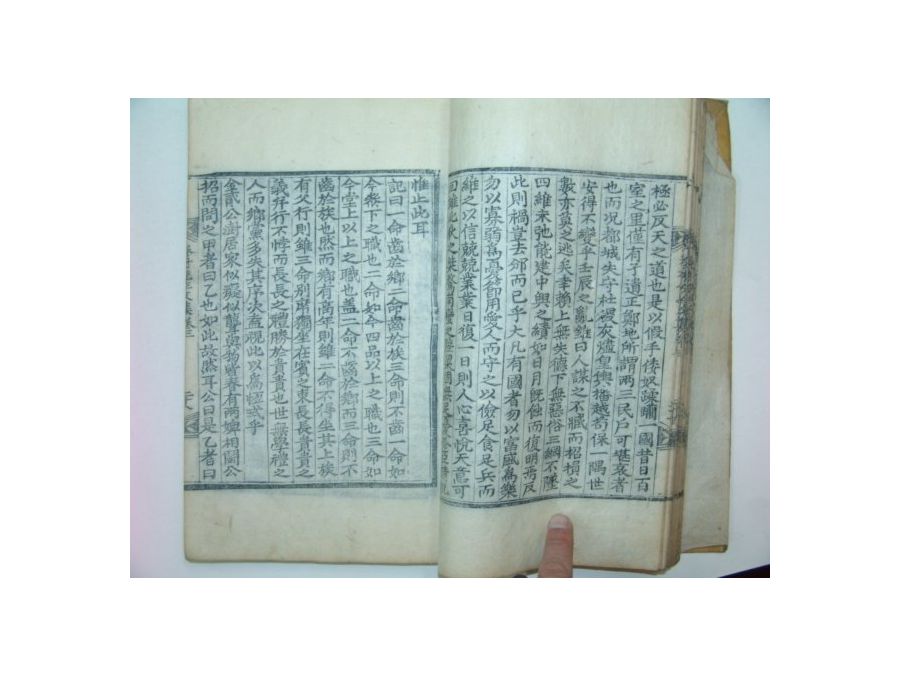 極必反天之道也是以假手倭奴蹂躪一國昔日百
室之里僅有孑遺正鄭地所謂兩三民戶可堪哀者
也而况都城失守社禝灰燼皇輿播越苟保一隅世
安得不變乎壬辰之亂雖曰人謀之不臧而招損之
數亦莫之逃矣幸賴上無失德下無惡俗三綱不墜
四維未弛能建中興之績如日月旣蝕而復明焉反
此則禍臺去郊而已乎大凡有國者勿以富盛爲樂
勿以寡弱爲憂節用愛人而守之以儉足食足兵而
維之以信兢兢業業日復一日則人心喜悅天意可
惟止此耳
記曰一命齒於鄕二命齒於族三命則不齒一命如
今叅下之職也二命如今四品以上之職也三命如
今堂上以上之職也盖二命不齒於鄕而三命則不
齒於族也然而鄕有高年則雖二命不得坐其上族
有父行則雖三命別席獨坐在賓之東長長貴貴之
義幷行不悖而長長之體勝於貴貴也世無學禮之
人而鄕黨多失其序次盍視此以爲恒式乎
金貳公澍居家似癡似聾與物皆春有兩嬗相鬪公
招而問之甲者曰乙也如此故然耳公曰是乙者曰